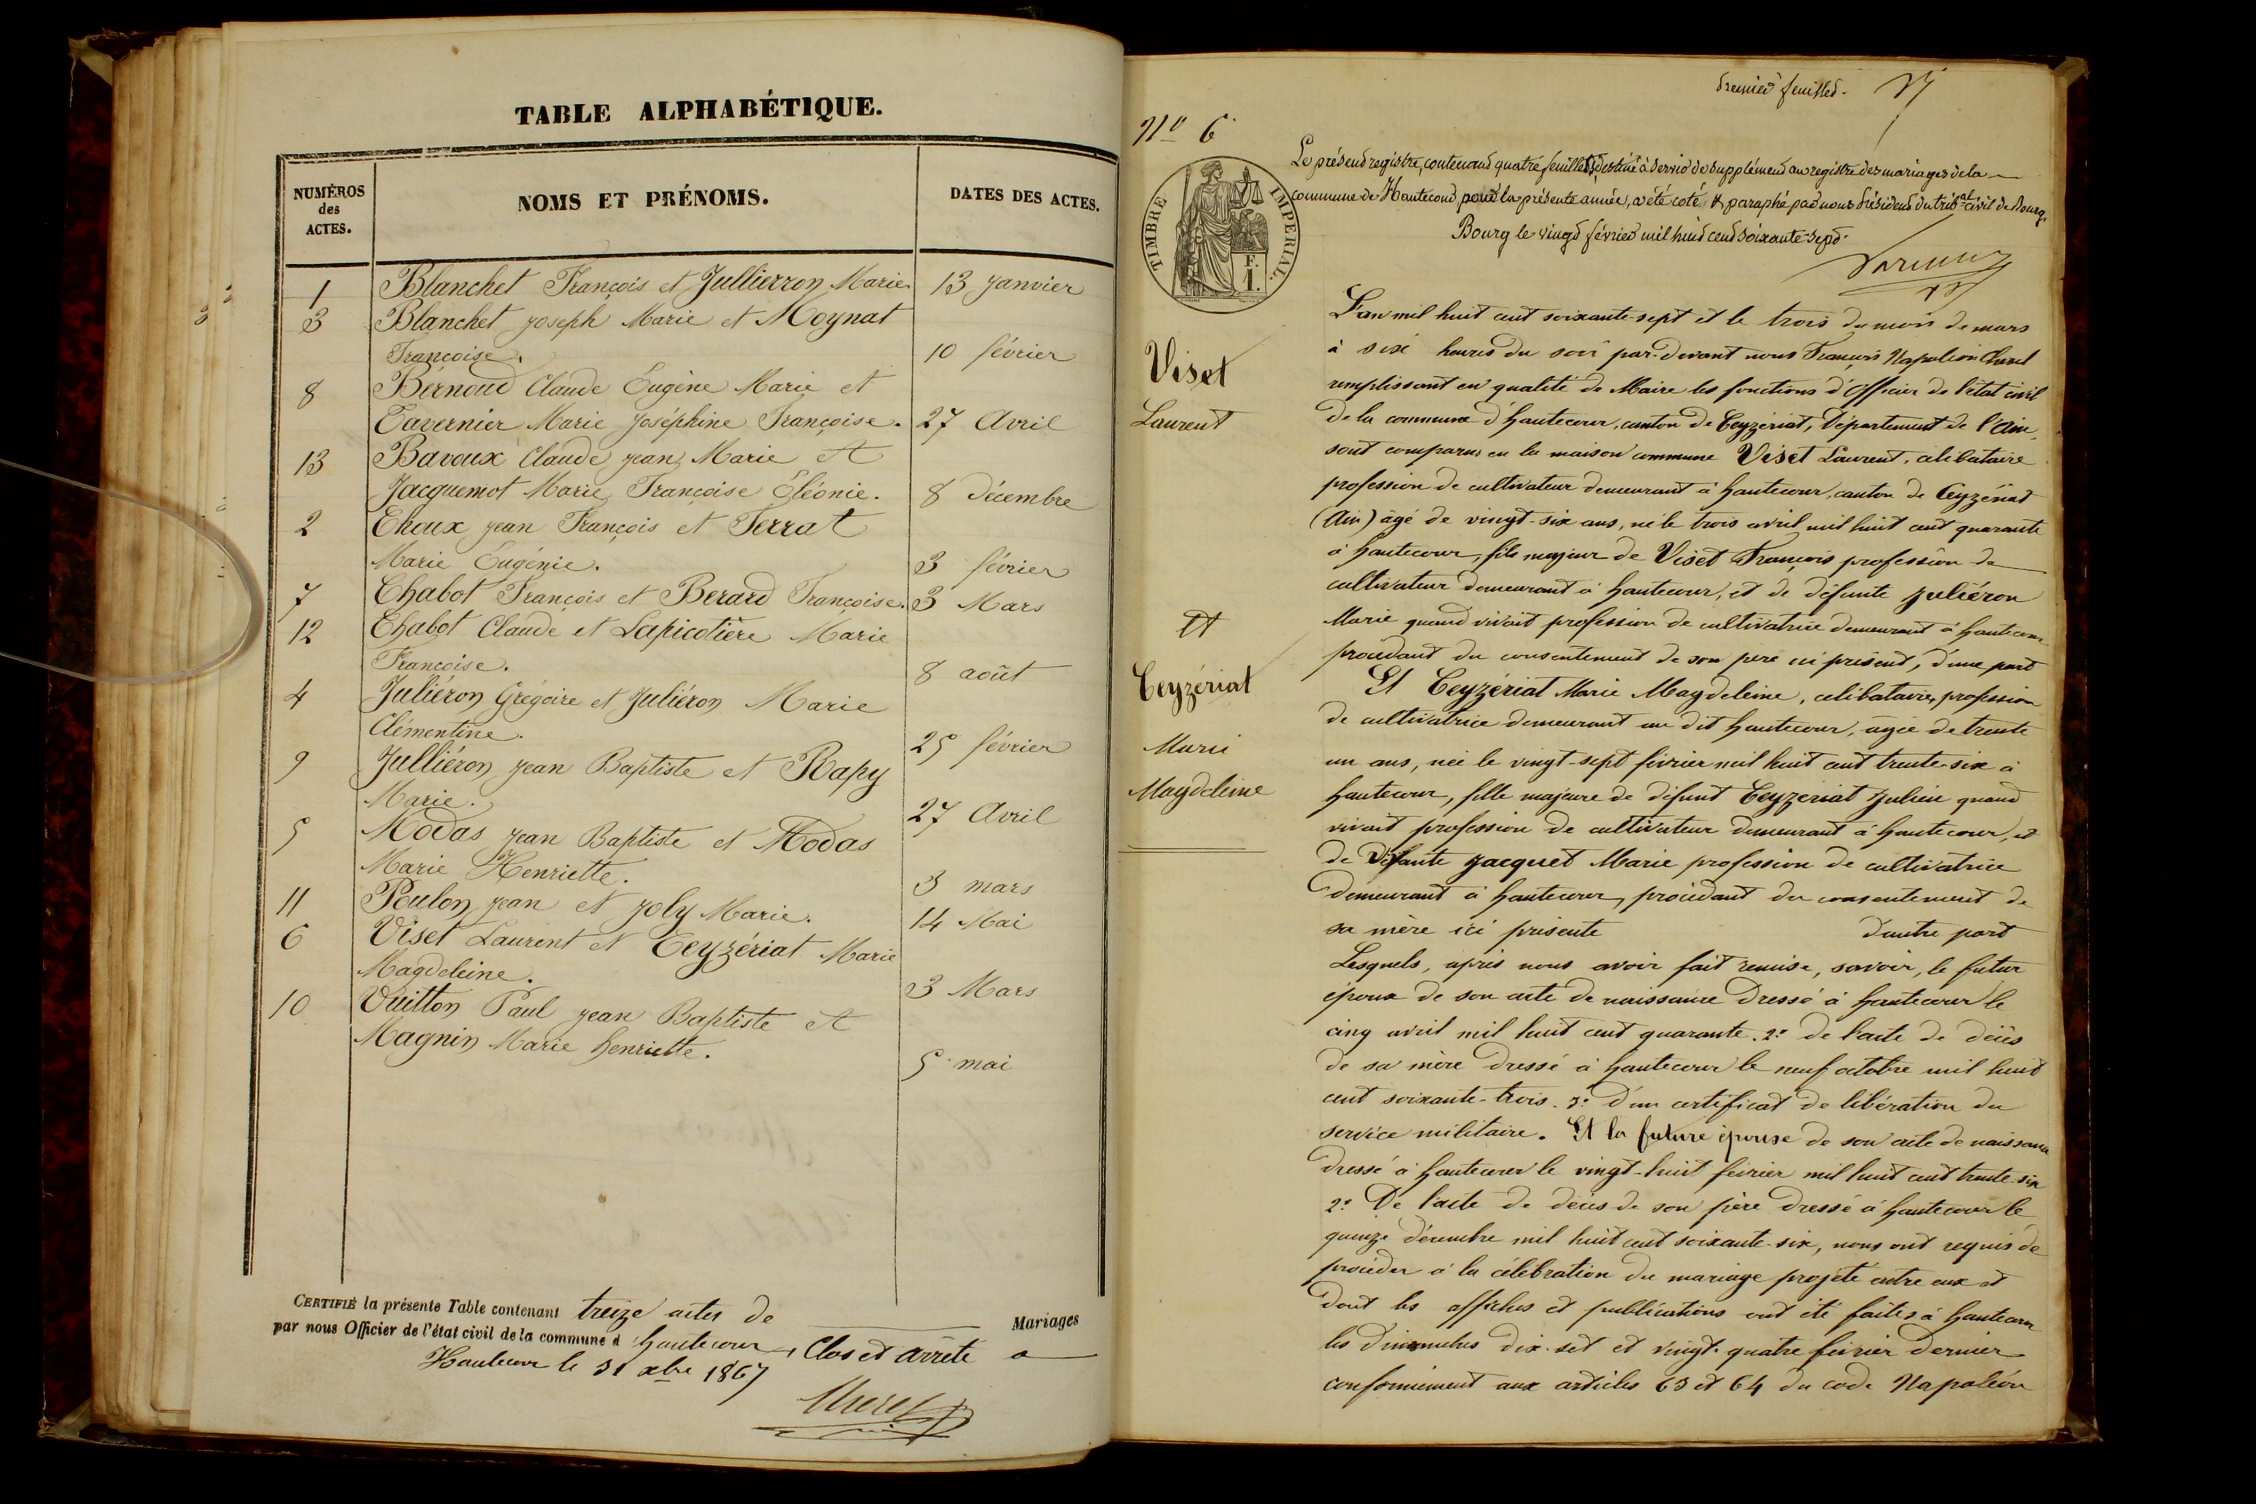 TABLE ALPHABÉTIQUE.
NUMÉROS
des
ACTES.
NOMS ET PRÉNOMS.
DATES DES ACTES.
1 Blanchet François et Jullierron Marie 13 janvier
3 Blanchet joseph Marie et Moynat
Françoise. 10 février
8 Bernoud Claude Eugène Marie et
Tavernier Marie joséphine Françoise. 27 Avril
13 Bavoux Claude jean Marie et
Jacquemot Marie Françoise Éléonie. 8 décembre
2 jean François et Ferrat
Marie Eugénie. 3 février
7 Chabot François et Berard Françoise. 3 Mars
12 Chabot Claude et Lapicotière Marie
Françoise. 8 août
4 Juliéron Grégoire et Juliéron Marie
Clémentine. 25 février
9 Julliéron jean Baptiste et Rapy
Marie. 27 Avril
5 Modas jean Baptiste et Modas
Marie Henriette. 3 mars
11 Poulon jean et joly Marie. 14 Mai
6 Viset Laurent et Ceyzériat Marie
Magdeleine. 3 Mars
10 Vuitton Paul jean Baptiste et
Magnin Marie henriette. 5 mai
CERTIFIÉ la présente Table contenant treize actes de Mariages
par nous Officier de l'état civil de la commune d hautecour, Clos et arrêté a
Hautecour le 31 xbre 1867
premier feuillet.
No 6
TIMBRE IMPERIAL.
F.
1.
Le présent registre, contenant quatre feuillets, destiné à servir de supplément au registre des mariages de la
commune de Hautecour, pour la présente année, a été coté & paraphé par nous Président du tribal civil de Bourg.
Bourg le vingt février mil huit cent soixante-sept.
Viset
Laurent
Et
Ceyzériat
Marie
Magdeleine
L'an mil huit cent soixante-sept et le trois du mois de mars
à six heures du soir par-devant nous François Napoléon
remplissant en qualité de Maire les fonctions d'Officier de l'état civil
de la commune d'hautecour, canton de Ceyzériat, Département de l'Ain,
sont comparus en la maison commune Viset Laurent, célibataire
profession de cultivateur demeurant à hautecour, canton de Ceyzériat
(Ain) âgé de vingt-six ans, né le trois avril mil huit cent quarante
à hautecour, fils majeur de Viset François profession de
cultivateur demeurant à hautecour, et de défunte juliéron
Marie quand vivait profession de cultivatrice demeurant à hautecour
procédant du consentement de son père ici présent, d'une part
Et Ceyzériat Marie Magdeleine, célibataire, profession
de cultivatrice demeurant au dit hautecour, agée de trente
un ans, née le vingt-sept février mil huit cent trente-six à
hautecour, fille majeure de défunt Ceyzeriat julien quand
vivait profession de cultivateur demeurant à hautecour, et
de Jacquet Marie profession de cultivatrice
demeurant à hautecour, procédant du consentement de
sa mère ici présente d'autre part
Lesquels, après nous avoir fait remise, savoir, le futur
époux de son acte de naissance dressé à hautecour le
cinq avril mil huit cent quarante. 2º de l'acte de décès
de sa mère dressé à hautecour le neuf octobre mil huit
cent soixante-trois. 3º d'un certificat de libération du
service militaire. Et la future épouse de son acte de naissance
dressé à hautecour le vingt-huit février mil huit cent trente-six
2º De l'acte de décès de son père dressé à hautecour le
quinze décembre mil huit cent soixante-six, nous ont requis de
procéder à la célébration du mariage projeté entre eux et
dont les affiches et publications ont été faites à hautecour
les dimanches dix-set et vingt-quatre février dernier
conformément aux articles 63 et 64 du code Napoléon